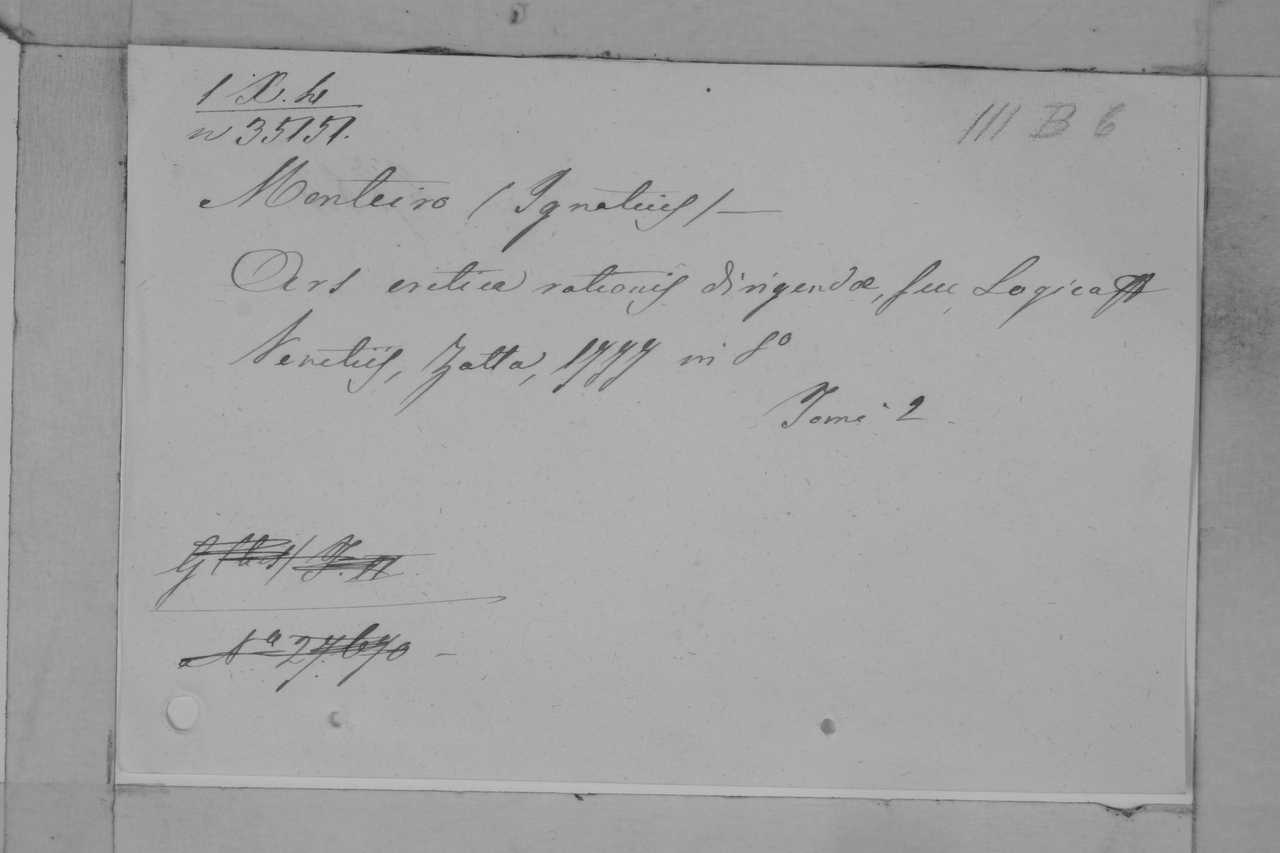 1 X. h
III B 6
n 35151.
Monteiro (Ignatius) —
Ars critica rationis dirigendæ, seu Logica
Venetiis, Zatta, 1777 in 8º
Tomi 2
Nº 27.670 —